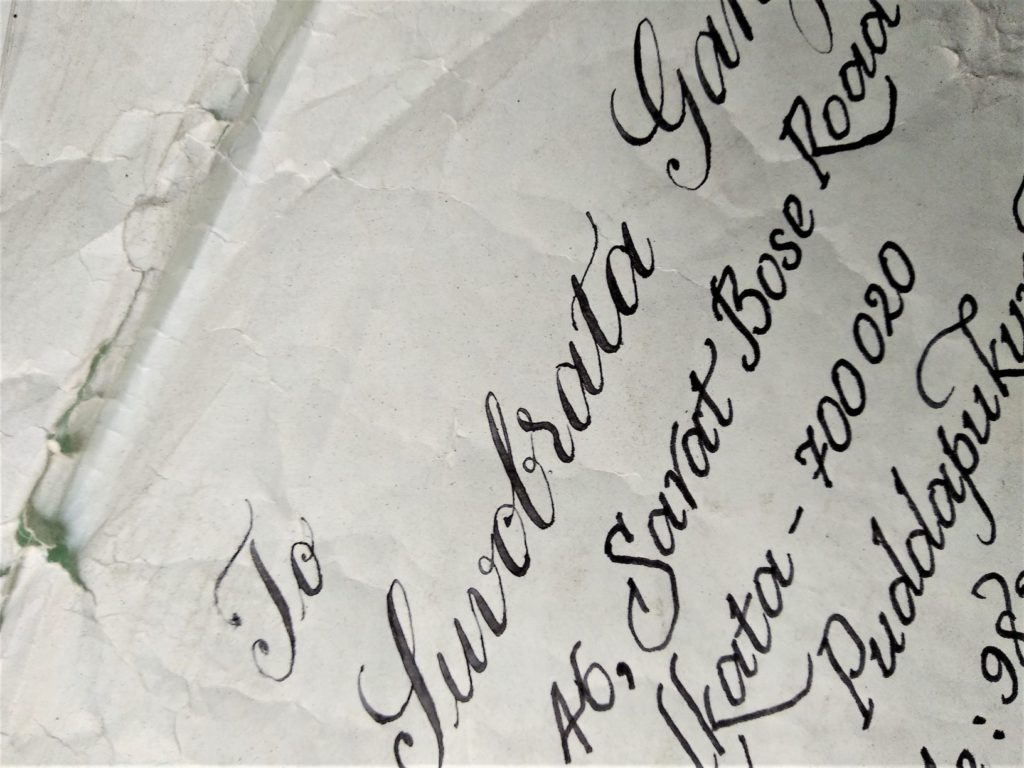 To
Suvobrata Gan
46, Sarat Bose Road
lkata - 700 020
Puddapuku
: 98